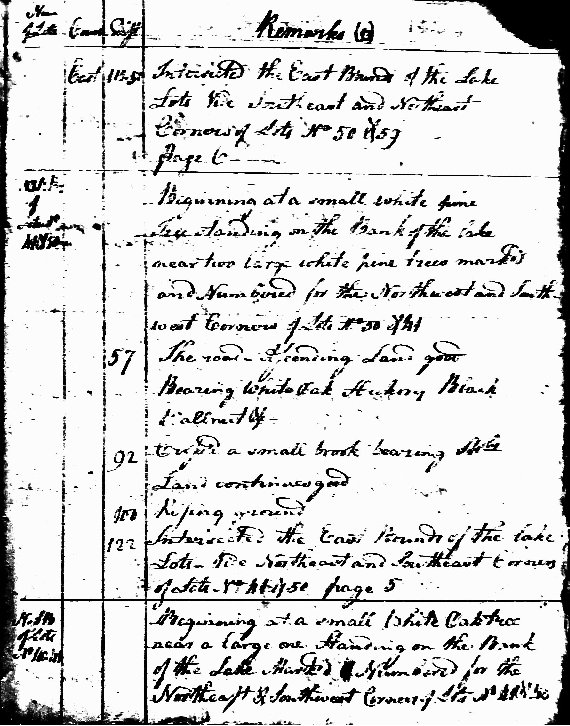 Remarks
East
Intersected the East Bounds of the Lake
Lots Vie Southeast and Northeast
Corners of Lots No 50 &
page 6
Beginning at a small white pine
Tree standing on the Bank of the lake
near two large white pine trees marked
and Numbered for the Northwest and South-
west Corners of Lots No 50
57 The road Ascending Land good
Bearing White Oak Hickory Black
Wallnut &c
92 Crossed a small brook bearing
Land continues good
100 Riseing ground
122 Intersected the East Bounds of the lake
Lots Vie Northeast and Southeast Corners
of Lots No 50 page 5
Beginning at a small White Oak tree
near a large one Standing on the Bank
of the Lake Marked & Numbered for the
Northeast & Southwest Corners of Lots No